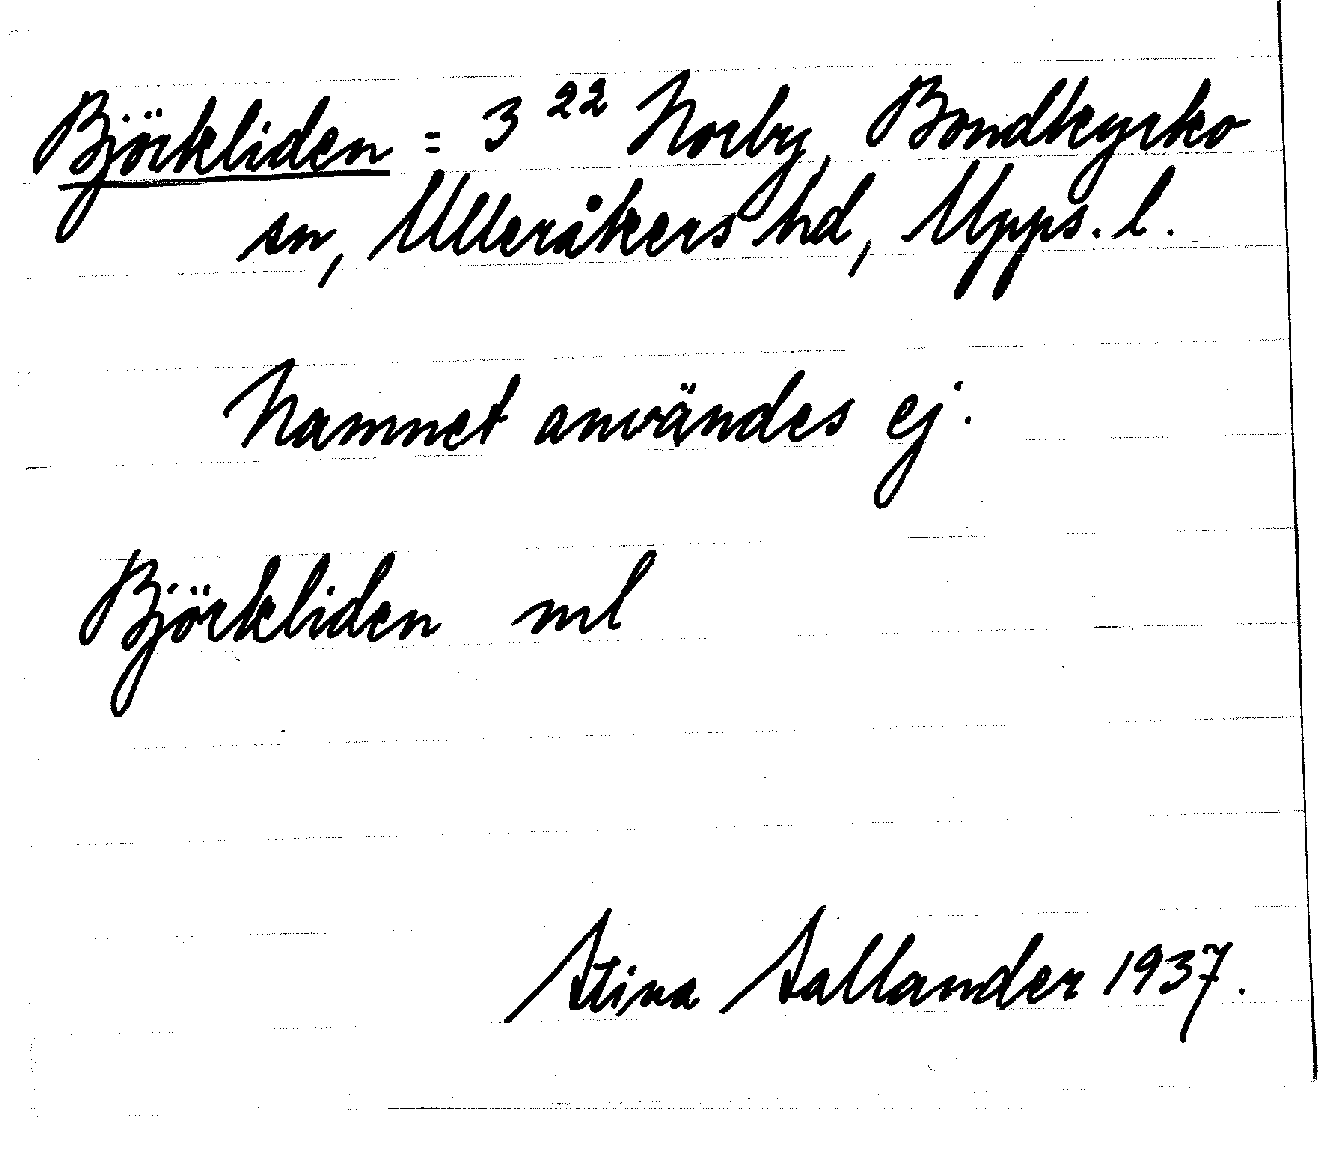 Björkliden = 3²² Norby, Bondkyrko
sn, Ulleråkers hd, Upps. l.
Namnet användes ej.
Björkliden ml
Stina Sallander 1937.